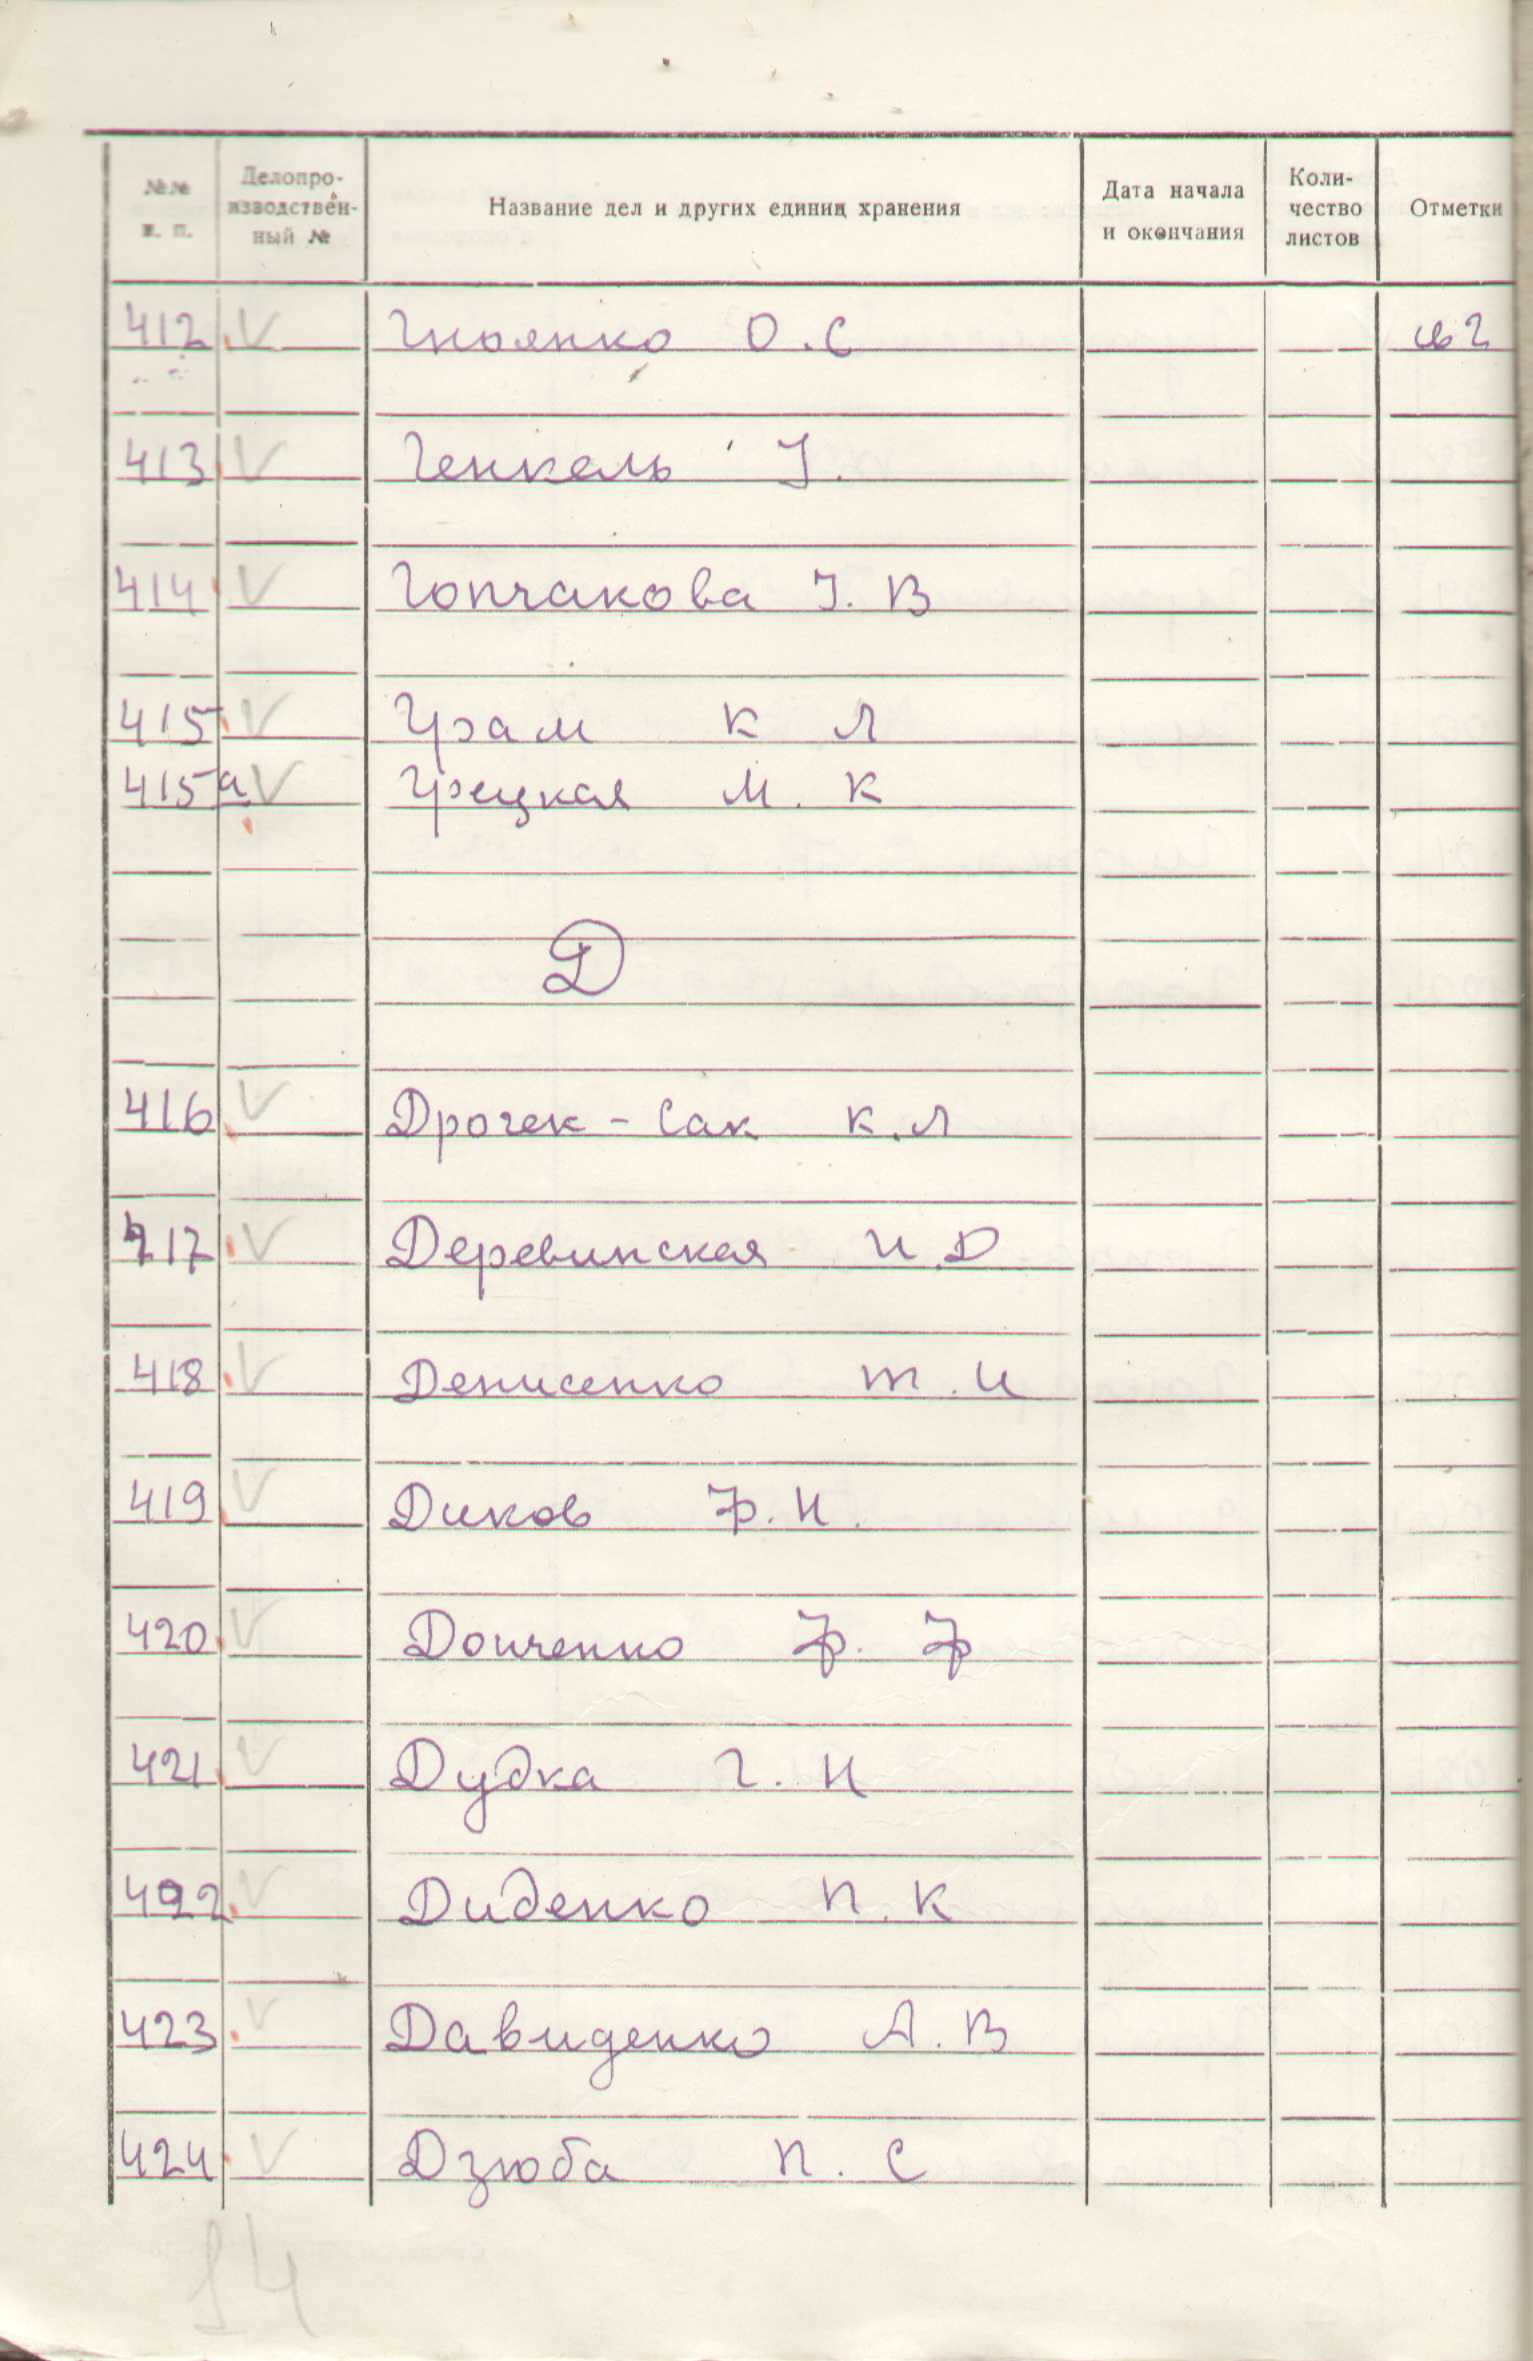 №№ п. п. Делопро-изводствен-ный № Название дел и других единиц хранения Дата начала и окончания Коли-чество листов Отметки
412 V Гноянко О.С
413 V Генкель І.
414 V Гопчакова І. В
415 V Грам К Л
415а V Грецкая М. К
Д
416 V Дрогек - Сак К.Л
417 V Деревинская И.Д
418 V Денисенко Т.И
419 V Диков Ф.И.
420 V Донченко Ф. Ф
421 V Дудка Г. И
422 V Диденко П. К
423 V Давиденко А. В
424 V Дзюба П. С
14